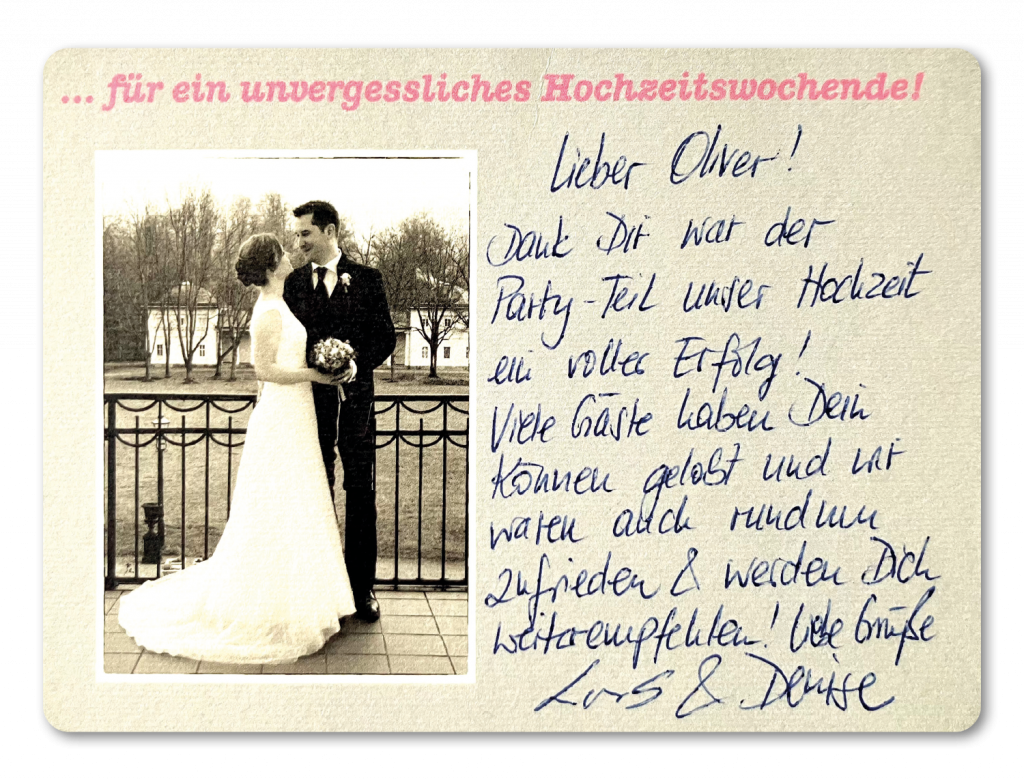 ... für ein unvergessliches Hochzeitswochende!
Lieber Oliver!
Dank Dir war der
Party-Teil unser Hochzeit
ein voller Erfolg!
Viele Gäste haben Dein
Können gelobt und wir
waren auch rundum
zufrieden & werden Dich
weiterempfehlen! Liebe Grüße
Lars & Denise